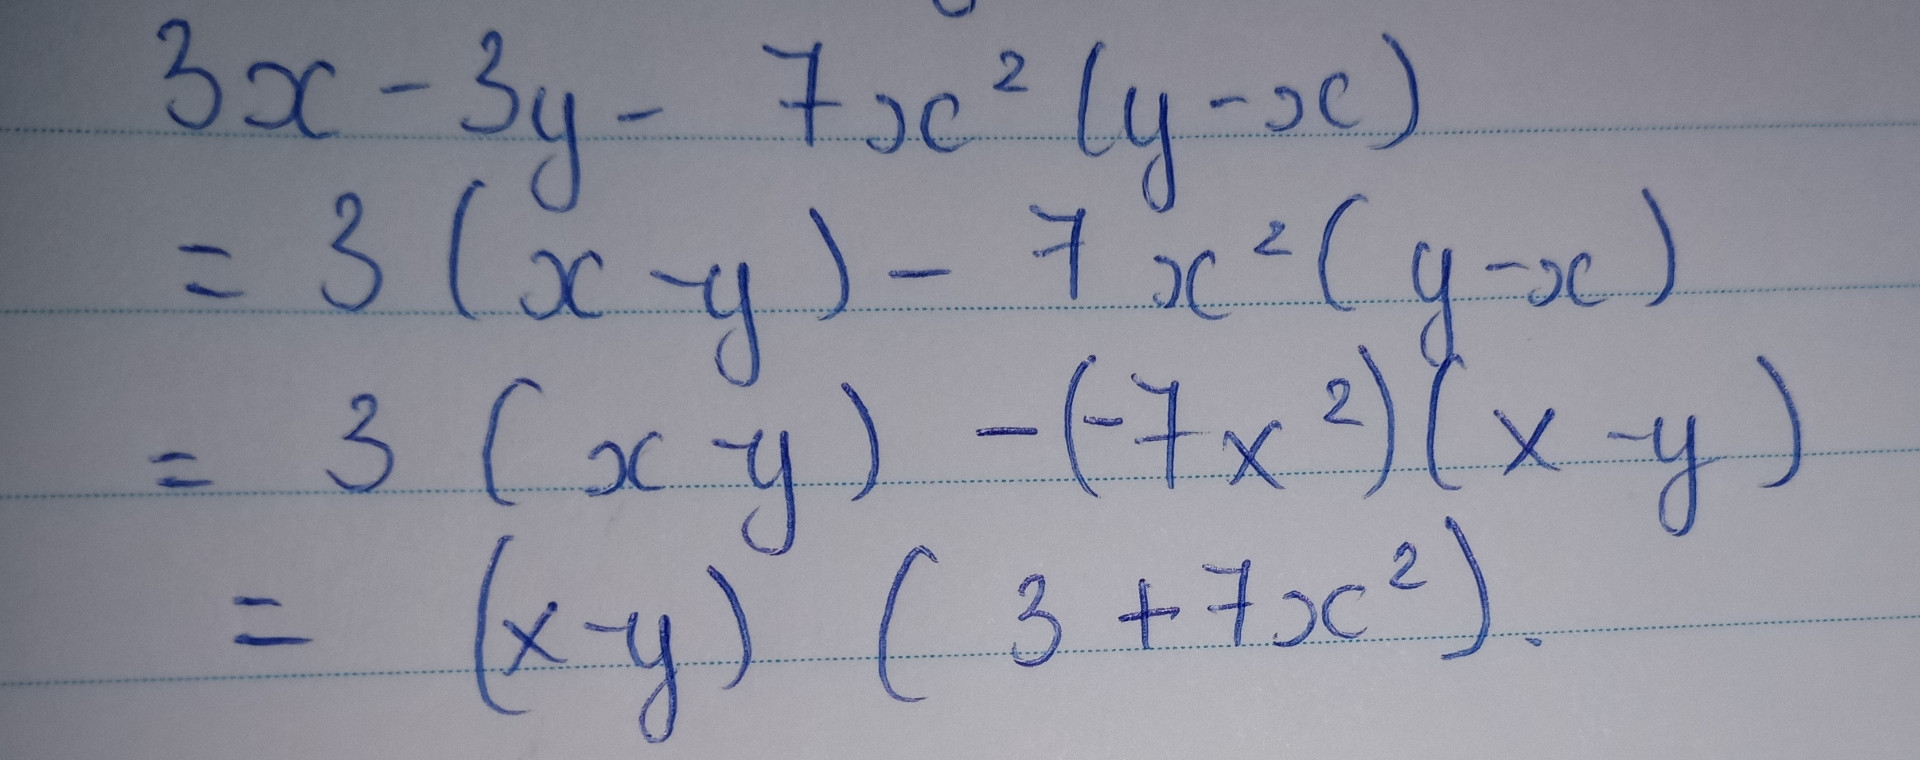 3x - 3y - 7x² (y - x)
= 3 (x - y) - 7x² (y - x)
= 3 (x - y) - (-7x²)(x - y)
= (x - y) (3 + 7x²).